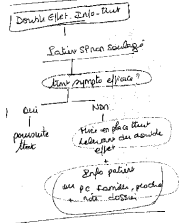 Double effet. Info. ttmt
Patient SP non soulagé
ttmt sympto efficace ?
Oui
NON
poursuite
ttmt
Mise en place ttmt
relevant du double
effet
+
Info patient
ou PC famille, proche
+ note dossier